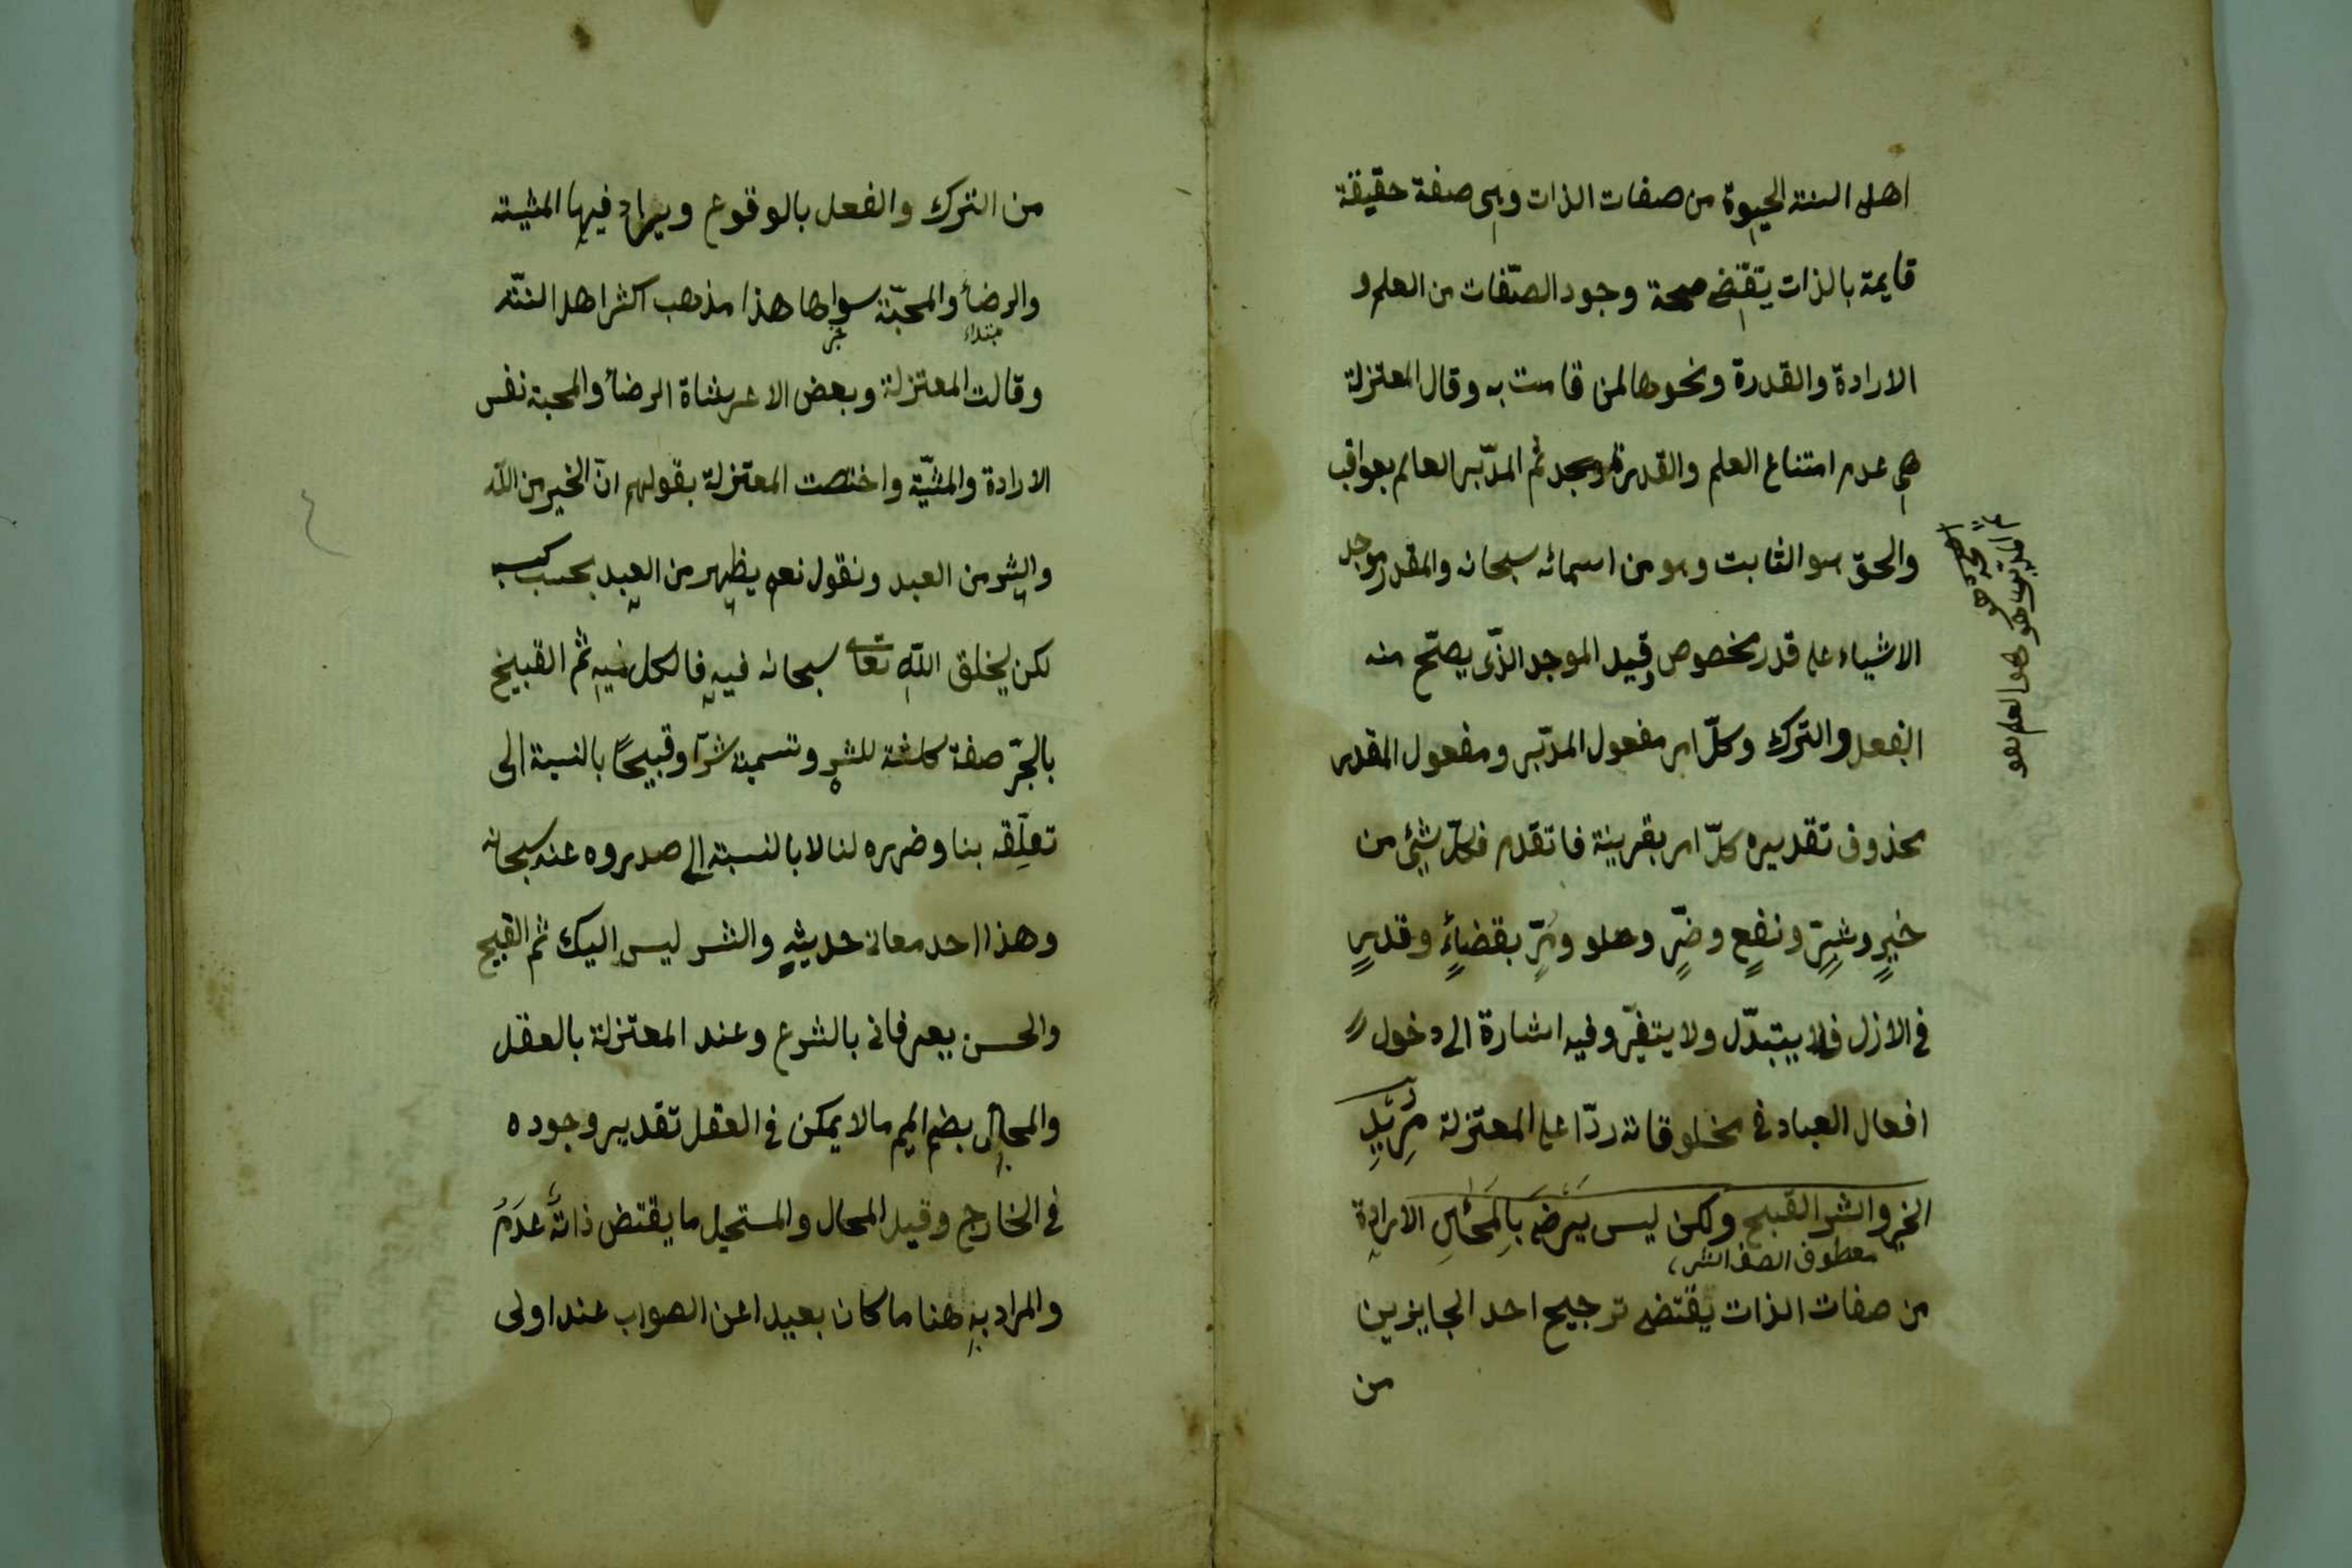 اهل السنة الحيوة من صفات الذات وهى صفة حقيقة
قايمة بالذات يقتضى صحة وجود الصّفات من العلم و
الارادة والقدرة ونحوها لمن قامت به وقال المعتزلة
هى عدم امتناع العلم والقدرة ثم المدّبر العالم بعواقب
والحقّ هو الثابت وهو من اسمائه سبحانه والمقدر موجد
الاشياء على قدر مخصوص وقيل الموجد الذّى يصتّح منه
الفعل والترك وكلّ امر مفعول المدّبر ومفعول المقدر
محذوف تقديره كلّ امر بقرينة فاتقدم فكلّ شئ من
خيرٍ وشرٍّ ونفعٍ وضرٍّ وحلو ومرٍّ بقضاءٍ وقدرٍ
فى الازل فلا يتبدّل ولا يتغيّر وفيه اشارة الى دخول
افعال العباد فى مخلوقاته ردّا على المعتزلة مُرِيْدِ
الخير والشر القبيح ولكن ليس يرضى بالمحال الارادة
معطوف الصف الشر
من صفات الذات يقتضى ترجيح احد الجايزين
من
من الترك والفعل بالوقوع ويراد فيها المشية
والرضأ والمحبّة سواها هذا مذهب اكثر اهل السنّة
مبتداء خبر
وقالت المعتزلة وبعض الاعرشاة الرضأ والمحبة نفس
الارادة والمشيّة واختصت المعتزلة بقولهم انّ الخير من اللّه
والشر من العبد ونقول نعم يظهر من العبد بحسب كسبه
لكن يخلق اللّه تعالى سبحانه فيه فالكل منه ثم القبيح
بالجرّ صفة كاشفة للشر وتسمية شرّا وقبيحًا بالنسبة الى
تعلّقه بنا وضرره لنا لا بالنسبة الى صدروه عنه سبحانه
وهذا احد معانى حديثه والشر ليس اليك ثم القبيح
والحسن يعرفان بالشرع وعند المعتزلة بالعقل
والمحال بضم الميم ما لا يمكن فى العقل تقدير وجوده
فى الخارج وقيل المحال والمستحيل ما يقتض ذاته عدَمَ
والمراد به هنا ما كان بعيدا عن الصواب عند اولى